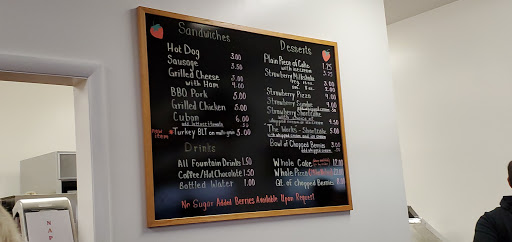 Sandwiches
Hot Dog 3.00
Sausage 3.50
Grilled Cheese 3.00
with Ham 4.00
BBQ Pork 5.00
Grilled Chicken 5.00
Cuban 6.00
add lettuce & tomato .50
New item *Turkey BLT on multi-grain 5.00
Drinks
All Fountain Drinks 1.50
Coffee/Hot Chocolate 1.50
Bottled Water 1.00
Desserts
Plain Piece of Cake 1.25
with ice cream
Strawberry Milkshake
Strawberry Pizza 4.00
Strawberry
Strawberry Shortcake
4.50
"The Works" - Shortcake 5.00
Bowl of Chopped Berries 3.00
add whipped cream
Whole Cake 12.00
Whole Pizza
Qt. of Chopped Berries
No Sugar Added Berries Available Upon Request
NAP